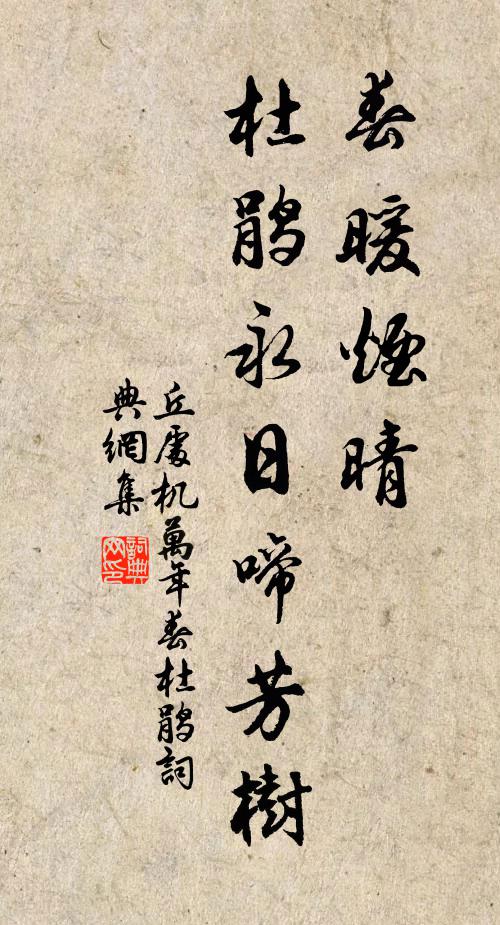 春暖煙晴
杜鵑永日啼芳樹
丘處机萬年春杜鵑詞
典網集
詞典網印